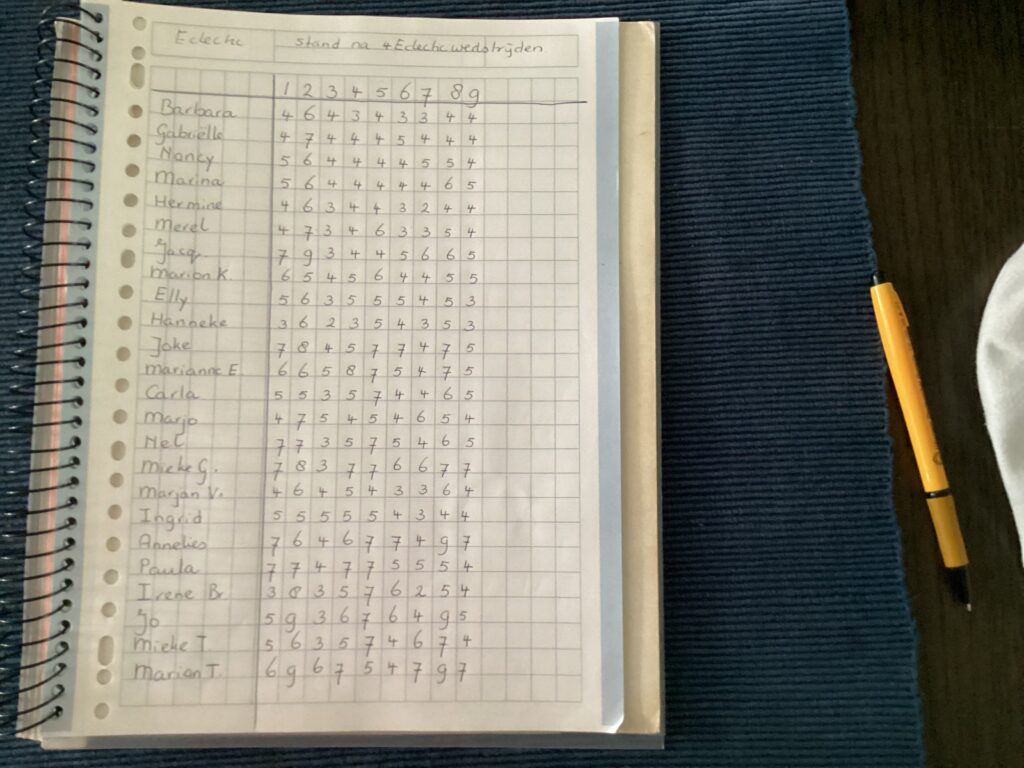 Eclectic stand na 4 Eclectic wedstrijden
1 2 3 4 5 6 7 8 9
Barbara 4 6 4 3 4 3 3 4 4
Gabriëlle 4 7 4 4 4 5 4 4 4
Nancy 5 6 4 4 4 4 5 5 4
Marina 5 6 4 4 4 4 4 6 5
Hermine 4 6 3 4 4 3 2 4 4
Merel 4 7 3 4 6 3 3 5 4
Jacq. 7 9 3 4 4 5 6 6 5
Marion K. 6 5 4 5 6 4 4 5 5
Elly 5 6 3 5 5 5 4 5 3
Hanneke 3 6 2 3 5 4 3 5 3
Joke 7 8 4 5 7 7 4 7 5
Marianne E. 6 6 5 8 7 5 4 7 5
Carla 5 5 3 5 7 4 4 6 5
Marjo 4 7 5 4 5 4 6 5 4
Nel 7 7 3 5 7 5 4 6 5
Mieke G. 7 8 3 7 7 6 6 7 7
Marjan V. 4 6 4 5 4 3 3 6 4
Ingrid 5 5 5 5 5 4 3 4 4
Annelies 7 6 4 6 7 7 4 9 7
Paula 7 7 4 7 7 5 5 5 4
Irene Br. 3 8 3 5 7 6 2 5 4
Jo 5 9 3 6 7 6 4 9 5
Mieke T. 5 6 3 5 7 4 6 7 4
Marion T. 6 9 6 7 5 4 7 9 7